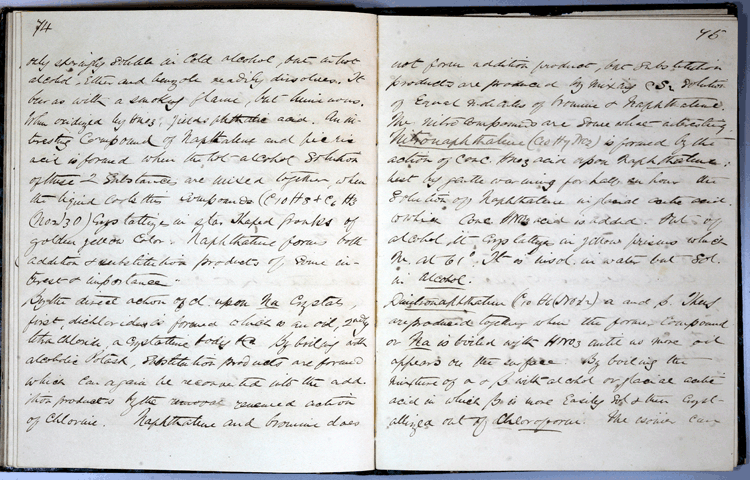 74
only sparingly soluble in cold alcohol, but in hot
alcohol, Ether and benzole readily dissolves. It
burns with a smokey flame, but luminous.
When oxidized by HNO3, yields phthalic acid. An in-
teresting Compound of Naphthalene and picric
acid is formed when the hot alcohol Solution
of these 2 Substances are mixed together, when
the liquid cools the compounds (C10H8 + C6H3
(NO2)3O) Crystallize in star Shaped groups of
golden yellow Color. Naphthalene forms both
addition & substitution products of some in-
terest & importance.
By the direct action of cl upon Na Crystals,
first, dichloride is formed which is an oil, 2ndly
tetra Chloride, a Crystalline body. By boiling with
alcoholic Potash, Substitution products are formed
which can again be reconverted into the add-
ition products by the renewed action
of Chlorine. Naphthalene and bromine does
75
not form addition product, but Substitution
products are produced by mixing CS2 Solution
of Equal Molecules of bromine & Naphthalene.
The nitro Compounds are Somewhat interesting.
Nitronaphthalene (C10H7NO2) is formed by the
action of Conc. HNO3 acid upon Naphthalene;
best by gentle warming for half an hour the
Solution of Naphthalene in glacial acetic acid
to which Conc HNO3 acid is added. Out of
alcohol it Crystallize in yellow prisms which
M. at 61°. It is insol. in water but Sol.
in alcohol.
(NO2)2) α and β. These
are produced together when the former Compound
or Na is boiled with HNO3 until no more oil
appears on the surface. By boiling the
mixture of α & β with alcohol or glacial acetic
acid in which β is more Easily Sol & then Cryst-
allized out of Chloroform. The isomer can